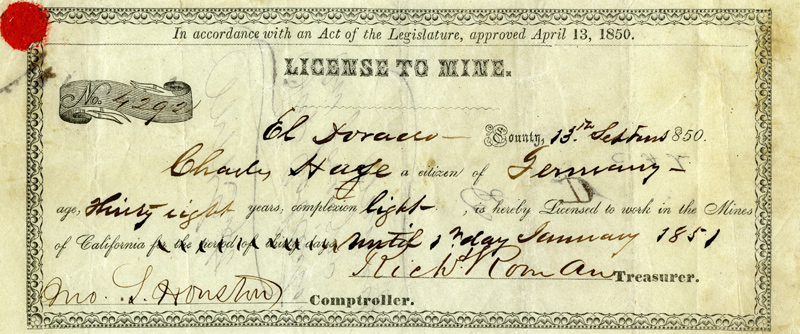 In accordance with an Act of the Legislature, approved April 13, 1850.
LICENSE TO MINE.
No. 4292
El Dorado County, 13th 1850.
Charles Hage a citizen of Germany
age, thirty eight years; complexion light, is hereby Licensed to work in the Mines
of California for the period of thirty days until 1st day January 1851
Richd. Roman Treasurer.
Jno. S. Houston Comptroller.